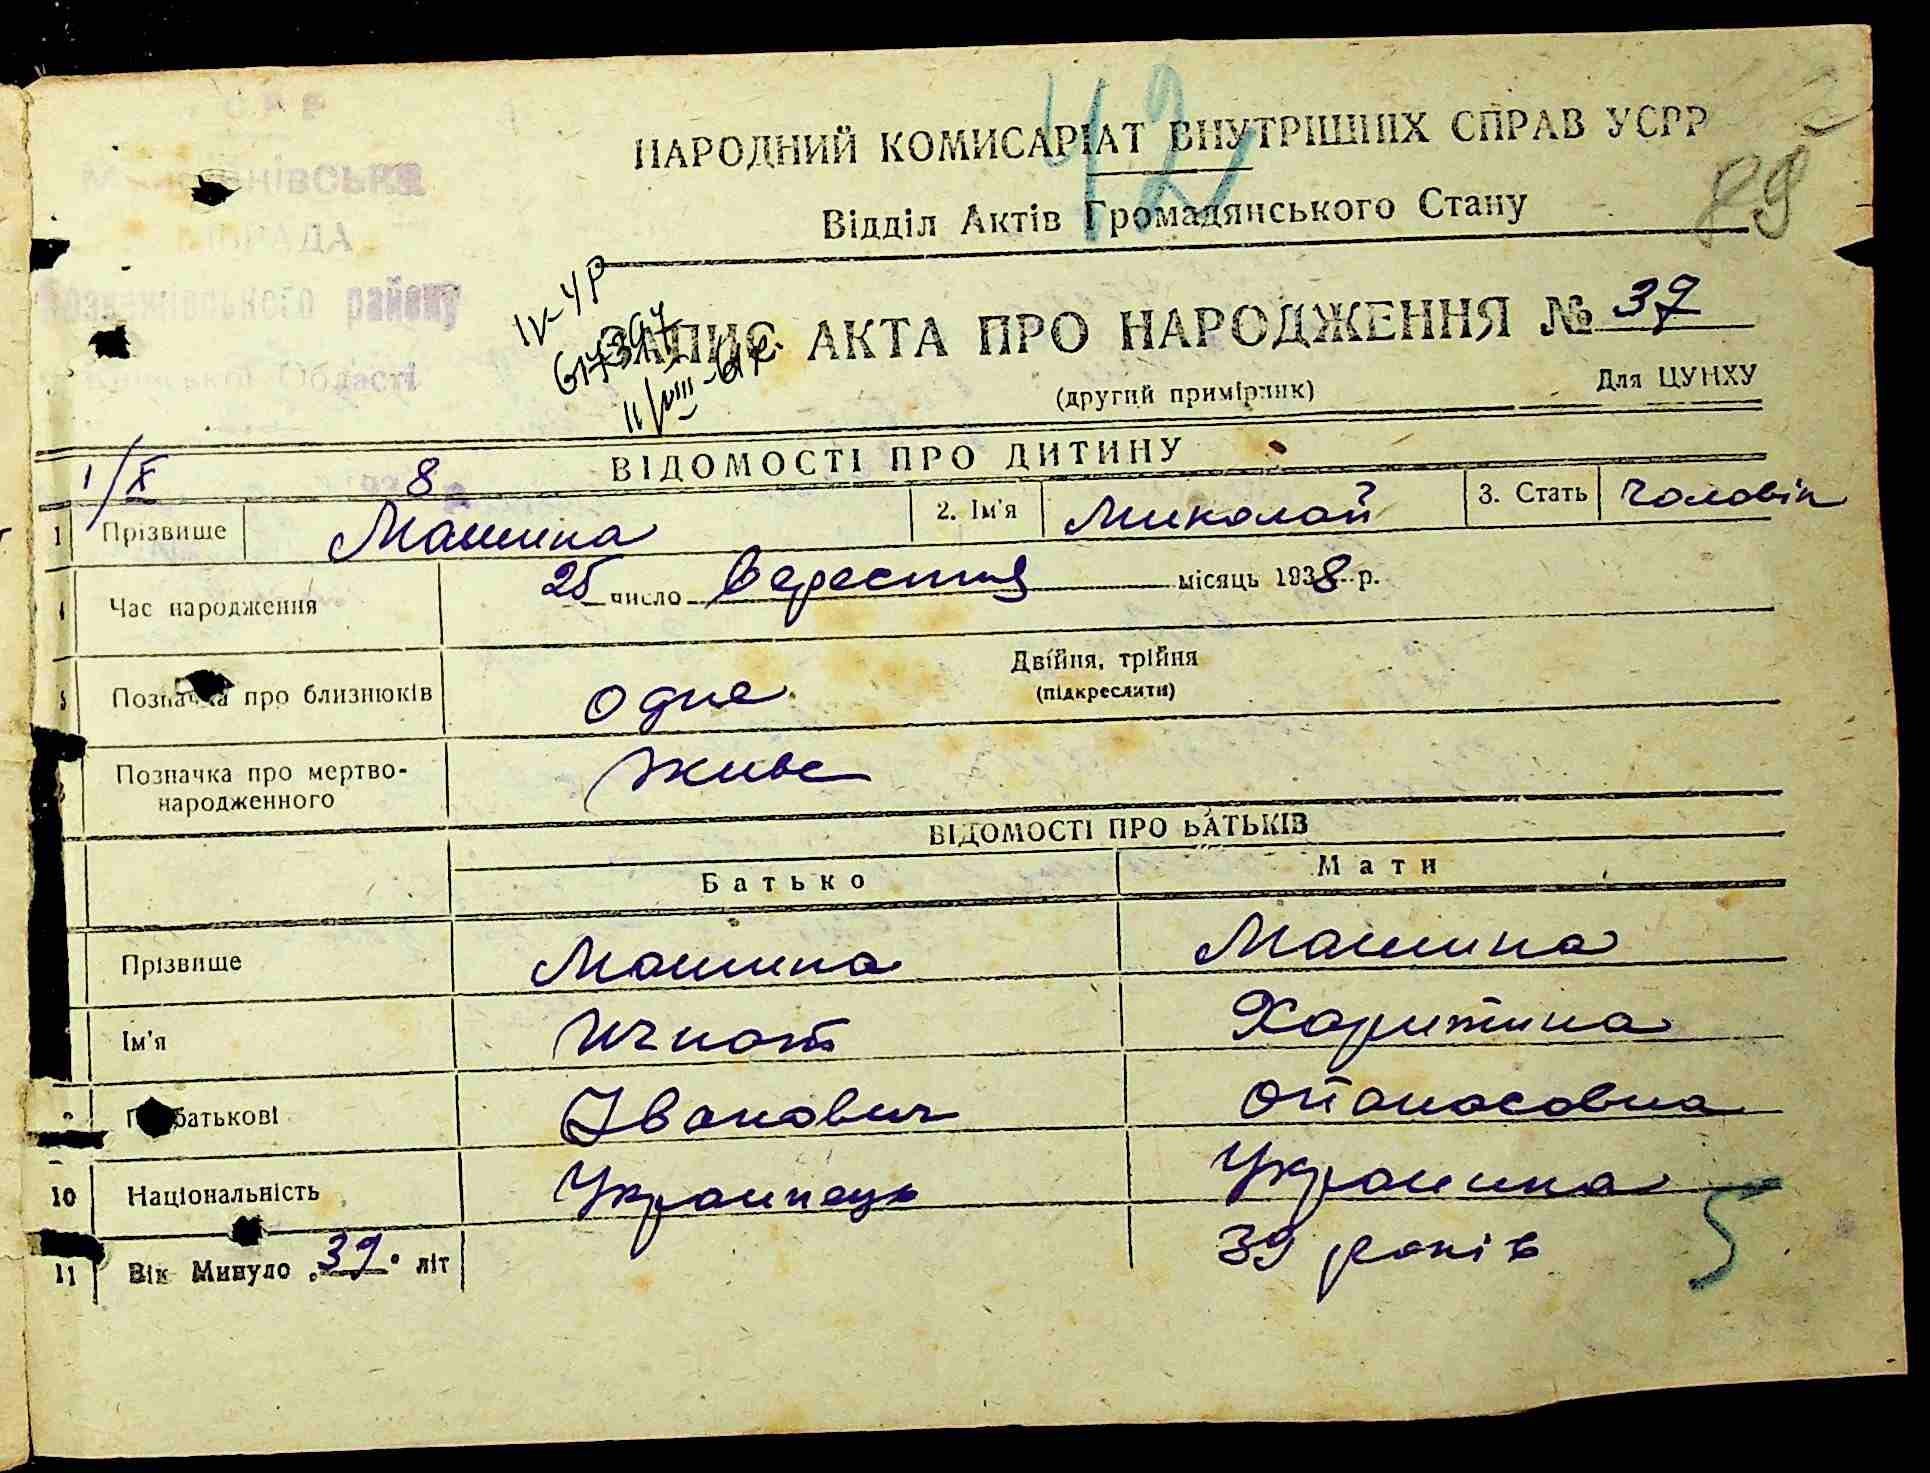 42
НАРОДНИЙ КОМИСАРІАТ ВНУТРІШНІХ СПРАВ УСРР
89
Відділ Актів Громадянського Стану
РАДА
району
Київської Області
ІV-УР
ЗАПИС АКТА ПРО НАРОДЖЕННЯ № 37
(другий примірник)
Для ЦУНХУ
ВІДОМОСТІ ПРО ДИТИНУ
1/X 8
1 Прізвище Машина 2. Ім'я Миколай 3. Стать Чоловік
4 Час народження 25 число Вересня місяць 1938 р.
5 Позначка про близнюків одне Двійня, трійня
(підкреслити)
Позначка про мертво-
народженного живе
ВІДОМОСТІ ПРО БАТЬКІВ
Батько Мати
Прізвище Машина Машина
Ім'я Игнат Харитина
По батькові Іванович Опанасовна
10 Національність Украинець Украинка
11 Вік Минуло 39 літ 39 років
5